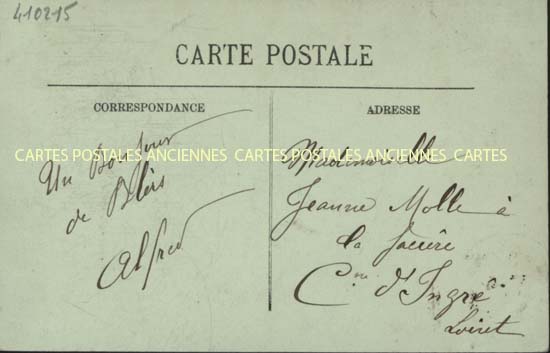 410215
CARTE POSTALE
CORRESPONDANCE
ADRESSE
CARTES POSTALES ANCIENNES CARTES POSTALES ANCIENNES CARTES
Un Bonjour
de Blois
Alfred
Mademoiselle
Jeanne Molle à
la
Cne d'Ingré
Loiret